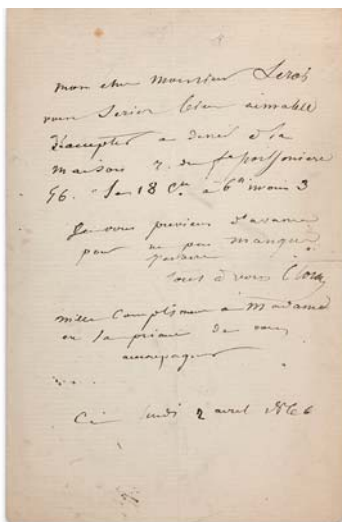 mon cher Monsieur
vous seriez bien aimable
d'accepter a diner à la
maison r. du fg poissonniere
56. le 18 Ct à 6h moins 3
Je vous previens d'avance
pour ne pas manquer
tout à vous Corot
mille Compliments à Madame
en la priant de vous
accompagner
Ce lundi 2 avril 1866